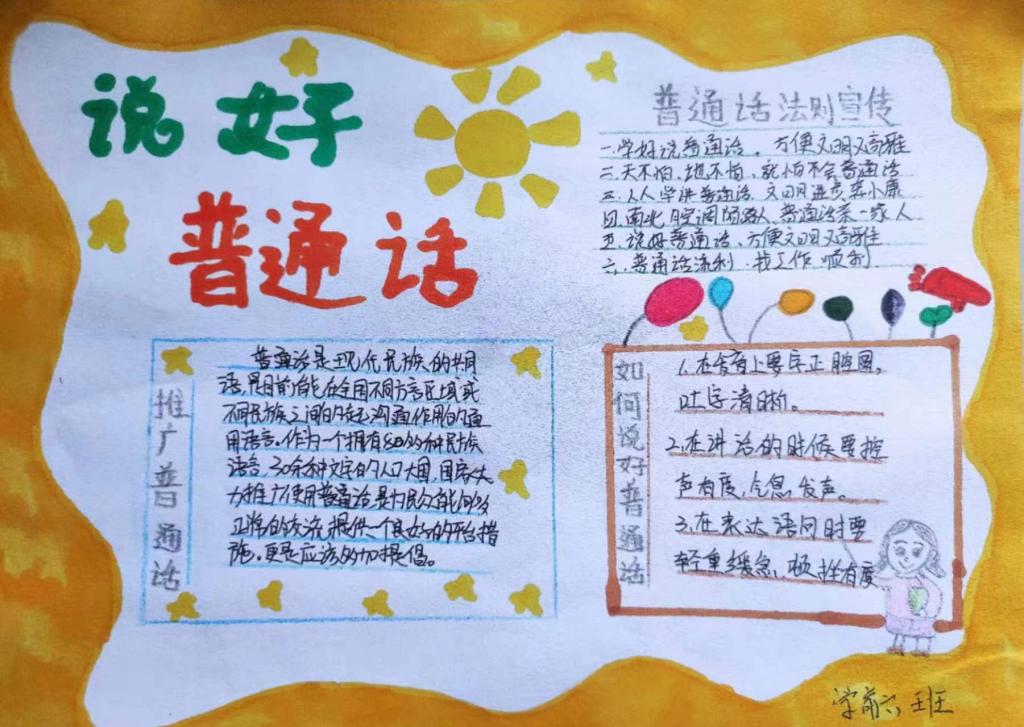 说好
普通话
普通话法则宣传
一.学好说普通话，方便文明又高雅
二.天不怕、地不怕、就怕不会普通话
三.人人学讲普通话、文明进步奔小康
四.南北腔调陌路人、普通话系一家人
五.说好普通话、方便文明又高雅
六.普通话流利、找工作顺利
推广普通话
普通话是现代民族的共同
语,是目前能在全国不同方言区域或
不同民族之间的起沟通作用的通
用语言.作为一个拥有80多种民族
语言、30余种文字的人口大国,国家大
力推广使用普通话,是为民众能够
正常的交流提供一个良好的平台措
施.更是应该多加提倡。
如何说好普通话
1.在含音上要字正腔圆,
吐字清晰。
2.在讲话的时候要控
声有度,气息发声。
3.在表达语问时要
轻重缓急、顿挫有度
学前六班